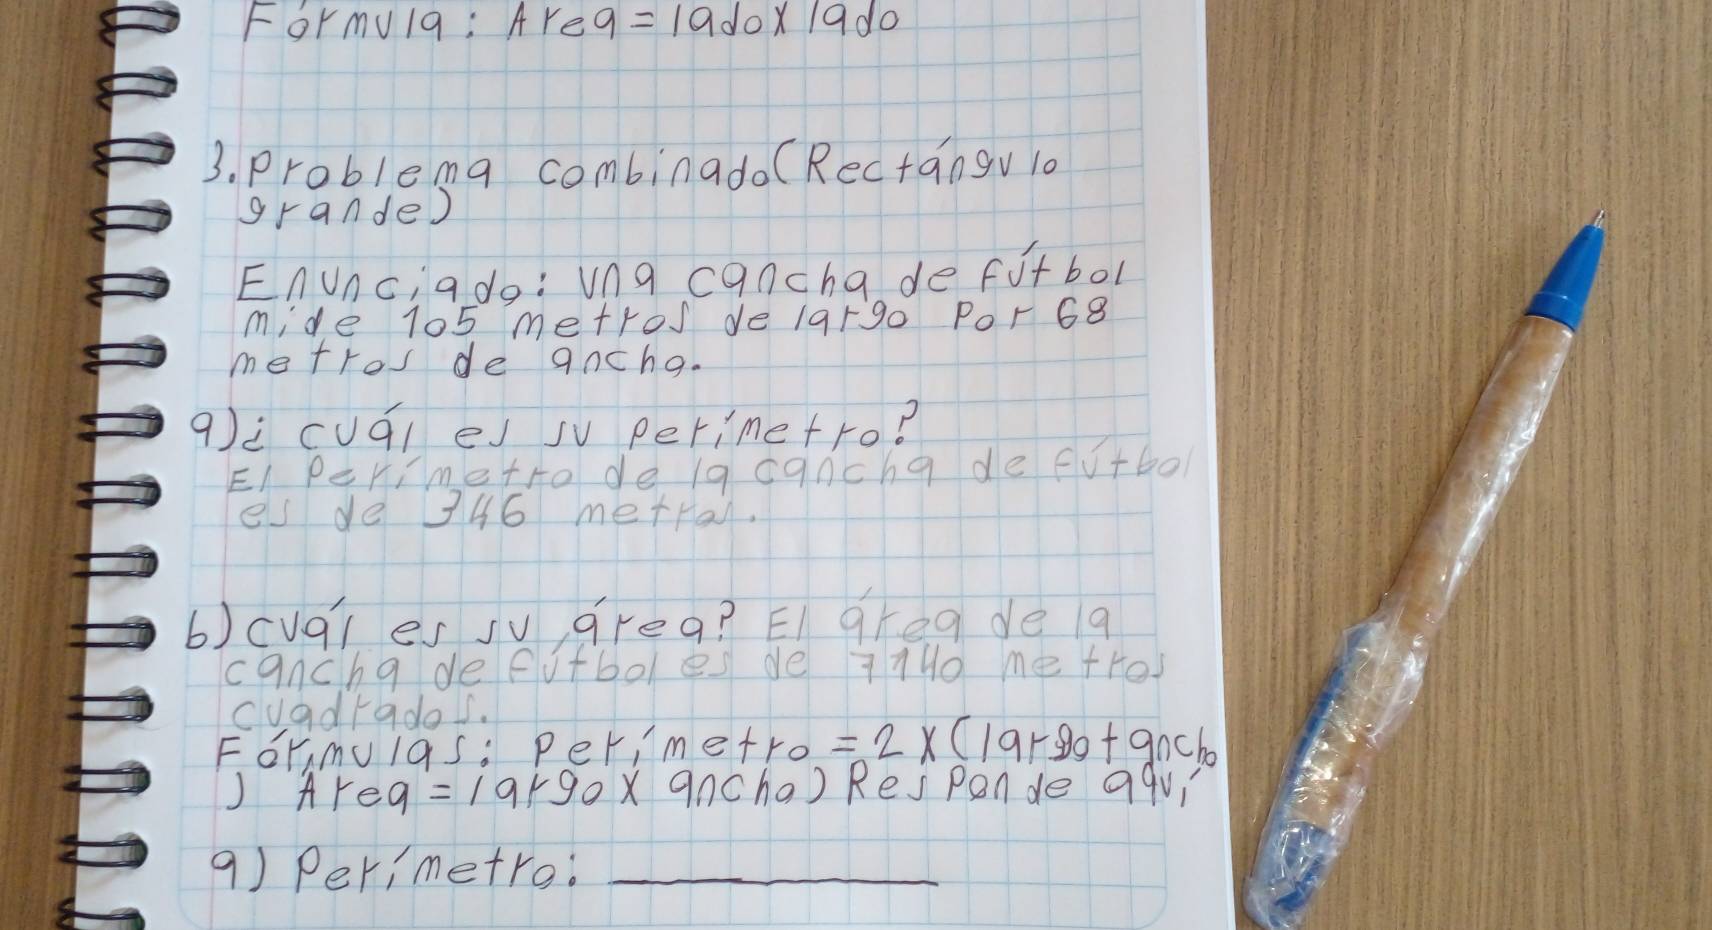 Fórmula: Area = lado x lado
3. Problema combinado (Rectángulo
grande)
Enunciado: una cancha de fútbol
mide 105 metros de largo Por 68
metros de ancho.
a) ¿cuál es su perímetro?
El Perímetro de la cancha de fútbol
es de 346 metros.
b) cuál es su área? El área de la
cancha de fútbol es de 7140 metros
cuadrados.
Fórmulas: Perímetro = 2 x (largo + ancho
) Área = largo x ancho) Responde aquí
a) Perímetro: ____________